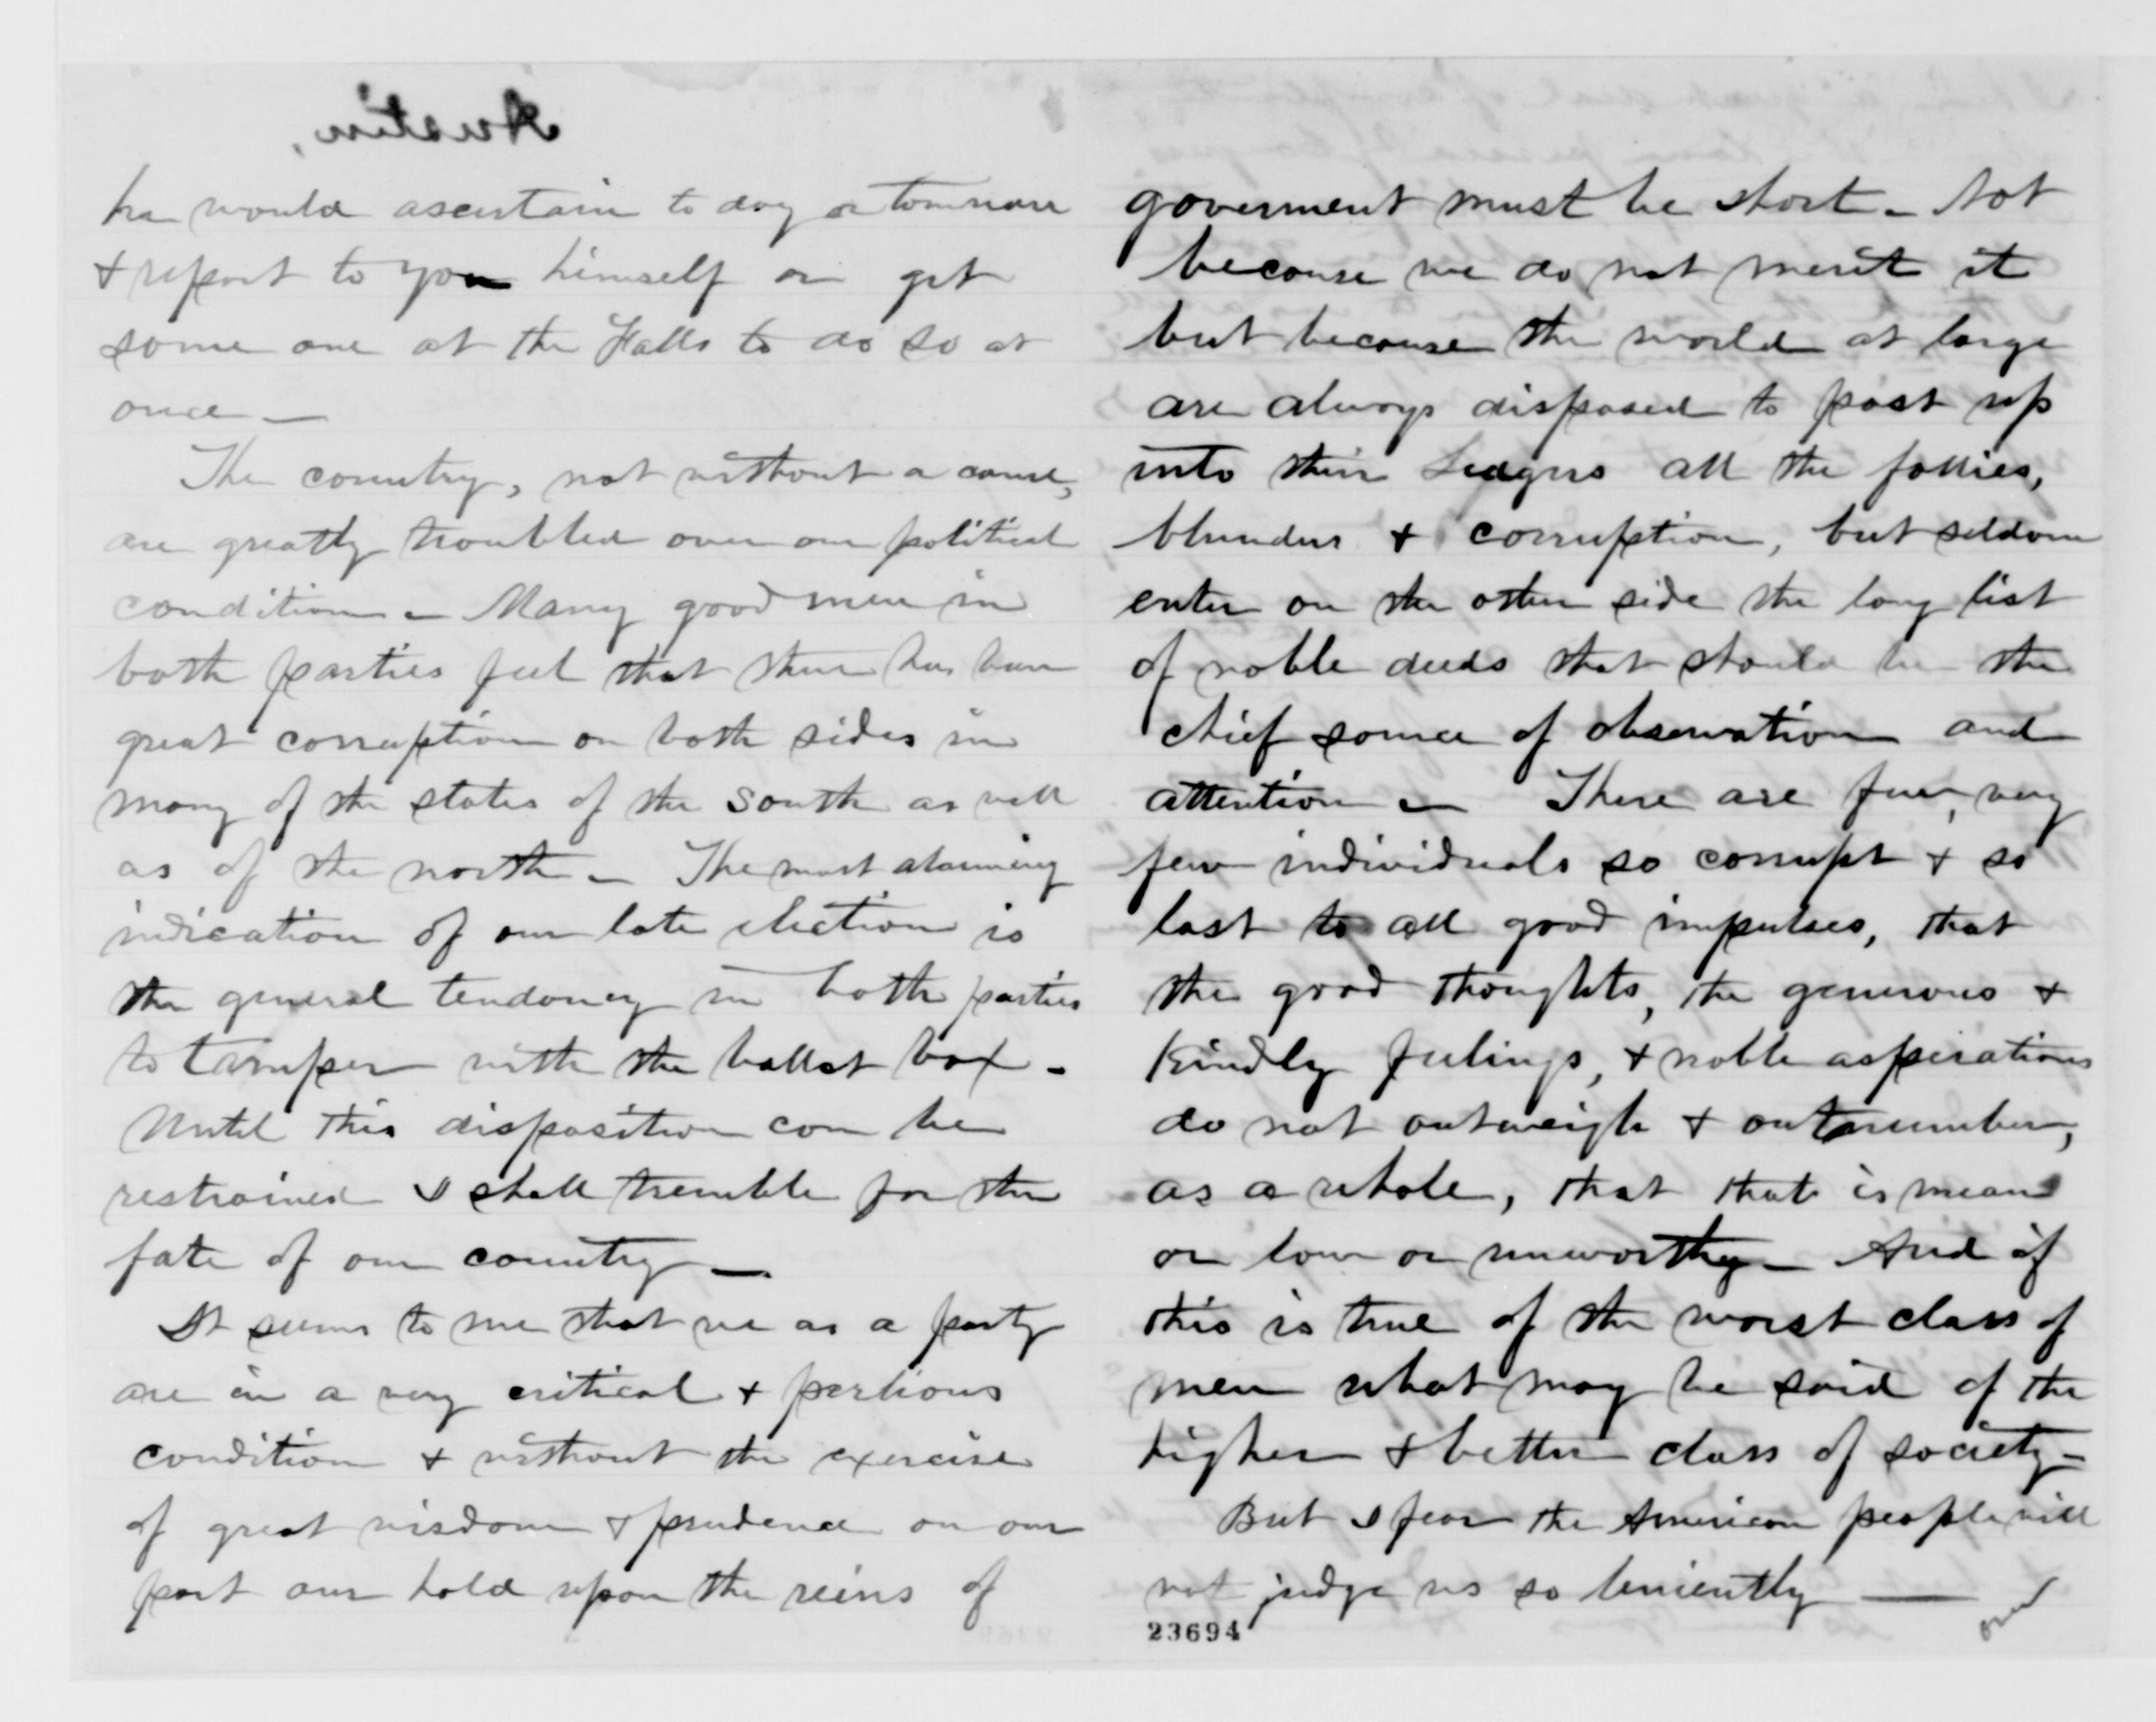 Austin,
he would ascertain to day or tomorrow
& report to you himself or get
some one at the Falls to do so at
once —
The country, not without a cause,
are greatly troubled over our political
condition – Many good men in
both parties feel that there has been
great corruption on both sides in
many of the states of the South as well
as of the north – The most alarming
indication of our late election is
the general tendency in both parties
to tamper with the ballot box –
Until this disposition can be
restrained I shall tremble for the
fate of our country —
It seems to me that we as a party
are in a very critical & perlious
condition & without the exercise
of great wisdom & prudence on our
part our hold upon the reins of
goverment must be short – Not
because we do not merit it
but because the world at large
are always disposed to post up
into their Ledgers all the follies,
blunders & corruption, but seldom
enter on the other side the long list
of noble deeds that should be the
chief source of observation and
attention – There are few, very
few individuals so corrupt & so
lost to all good impulses, that
the good thoughts, the generous &
kindly feelings, & noble aspirations
do not outweigh & outnumber,
as a whole, that that is mean
or low or unworthy – And if
this is true of the worst class of
men what may be said of the
higher & better class of society –
But I fear the American people will
not judge us so leniently —
over
23694